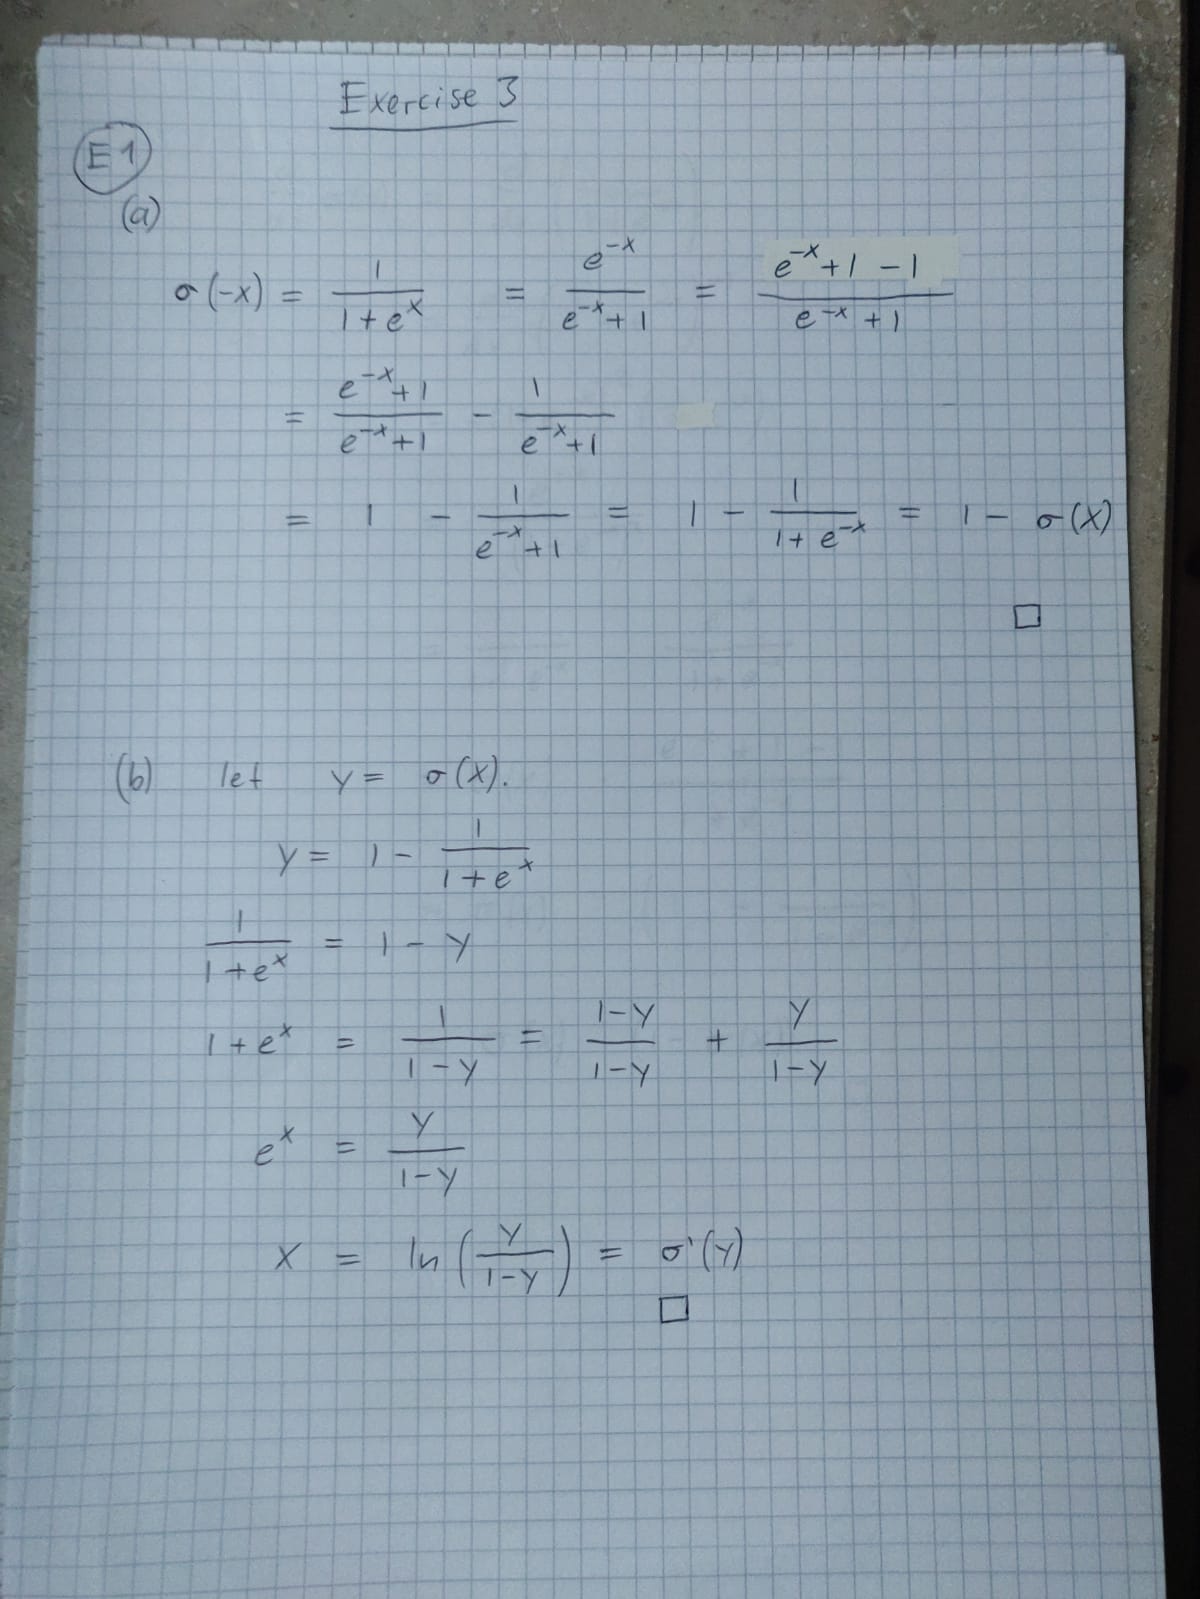 Exercise 3
E1
(a)
σ(-x) = 1/(1 + e^x) = e^-x/(e^-x + 1) = (e^-x + 1 - 1)/(e^-x + 1)
= (e^-x + 1)/(e^-x + 1) - 1/(e^-x + 1)
= 1 - 1/(e^-x + 1) = 1 - 1/(1 + e^-x) = 1 - σ(x)
□
(b) let y = σ(x).
y = 1 - 1/(1 + e^x)
1/(1 + e^x) = 1 - y
1 + e^x = 1/(1 - y) = (1 - y)/(1 - y) + y/(1 - y)
e^x = y/(1 - y)
x = ln(y/(1 - y)) = σ'(y)
□